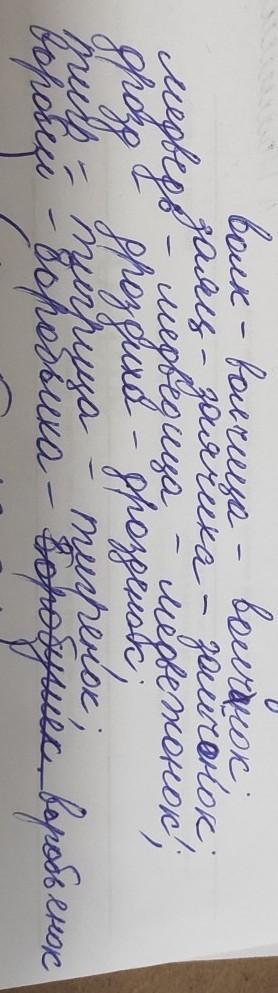 волк - волчица - волчонок;
заяц - зайчиха - зайчонок;
медведь - медведица - медвежонок;
дрозд - дроздиха - дроздёнок;
тигр - тигрица - тигрёнок;
воробей - воробьиха - воробушек воробьёнок